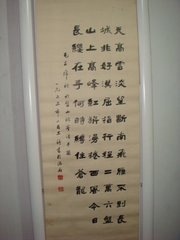 天高雲淡望斷南飛雁不到長
城非好漢屈指行程二萬六盤
山上高峰紅旗漫捲西風今日
長纓在手何時縛住蒼龍